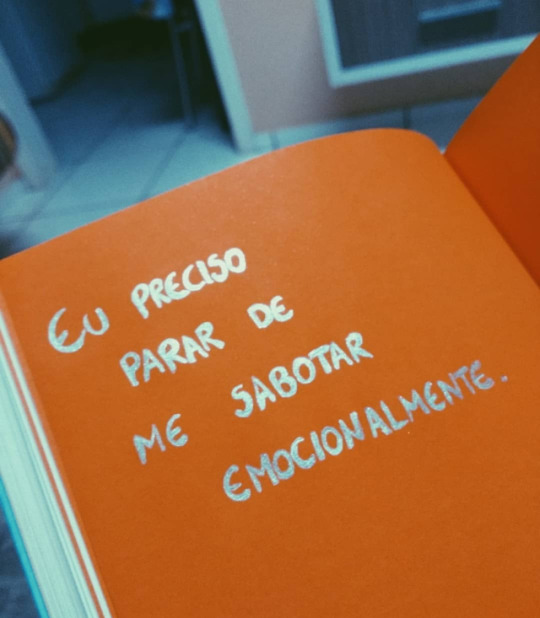 Eu PRECISO
PARAR DE
ME SABOTAR
EMOCIONALMENTE.